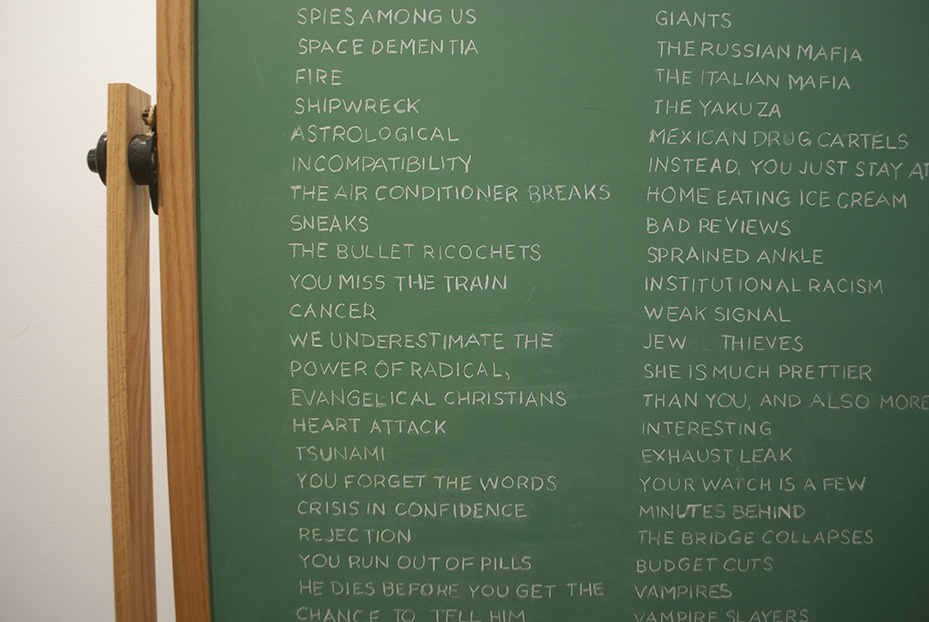 SPIES AMONG US
SPACE DEMENTIA
FIRE
SHIPWRECK
ASTROLOGICAL
INCOMPATIBILITY
THE AIR CONDITIONER BREAKS
SNEAKS
THE BULLET RICOCHETS
YOU MISS THE TRAIN
CANCER
WE UNDERESTIMATE THE
POWER OF RADICAL,
EVANGELICAL CHRISTIANS
HEART ATTACK
TSUNAMI
YOU FORGET THE WORDS
CRISIS IN CONFIDENCE
REJECTION
YOU RUN OUT OF PILLS
HE DIES BEFORE YOU GET THE
CHANCE TO TELL HIM
GIANTS
THE RUSSIAN MAFIA
THE ITALIAN MAFIA
THE YAKUZA
MEXICAN DRUG CARTELS
INSTEAD, YOU JUST STAY AT
HOME EATING ICE CREAM
BAD REVIEWS
SPRAINED ANKLE
INSTITUTIONAL RACISM
WEAK SIGNAL
JEW THIEVES
SHE IS MUCH PRETTIER
THAN YOU, AND ALSO MORE
INTERESTING
EXHAUST LEAK
YOUR WATCH IS A FEW
MINUTES BEHIND
THE BRIDGE COLLAPSES
BUDGET CUTS
VAMPIRES
VAMPIRE SLAYERS